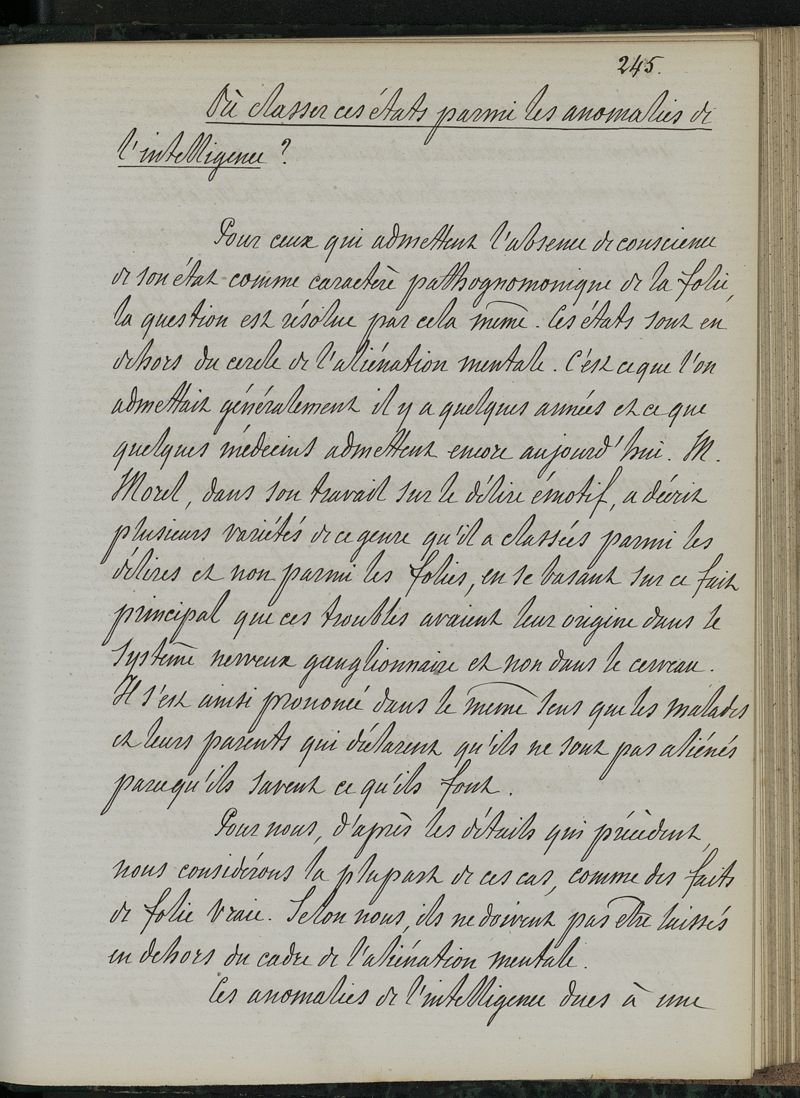 245.
Où classer ces états parmi les anomalies de
l'intelligence ?
Pour ceux qui admettent l'absence de conscience
de son état comme caractère pathognomonique de la folie,
la question est résolue par cela même. Ces états sont en
dehors du cercle de l'aliénation mentale. C'est ce que l'on
admettait généralement il y a quelques années et ce que
quelques médecins admettent encore aujourd'hui. M.
Morel, dans son travail sur le délire émotif, a décrit
plusieurs variétés de ce genre qu'il a classées parmi les
délires et non parmi les folies, en se basant sur ce fait
principal que ces troubles avaient leur origine dans le
système nerveux ganglionnaire et non dans le cerveau.
Il s'est ainsi prononcé dans le même sens que les malades
et leurs parents qui déclarent qu'ils ne sont pas aliénés
parcequ'ils savent ce qu'ils font.
Pour nous, d'après les détails qui précèdent,
nous considérons la plupart de ces cas, comme des faits
de folie vraie. Selon nous, ils ne doivent pas être laissés
en dehors du cadre de l'aliénation mentale.
Ces anomalies de l'intelligence dues à une